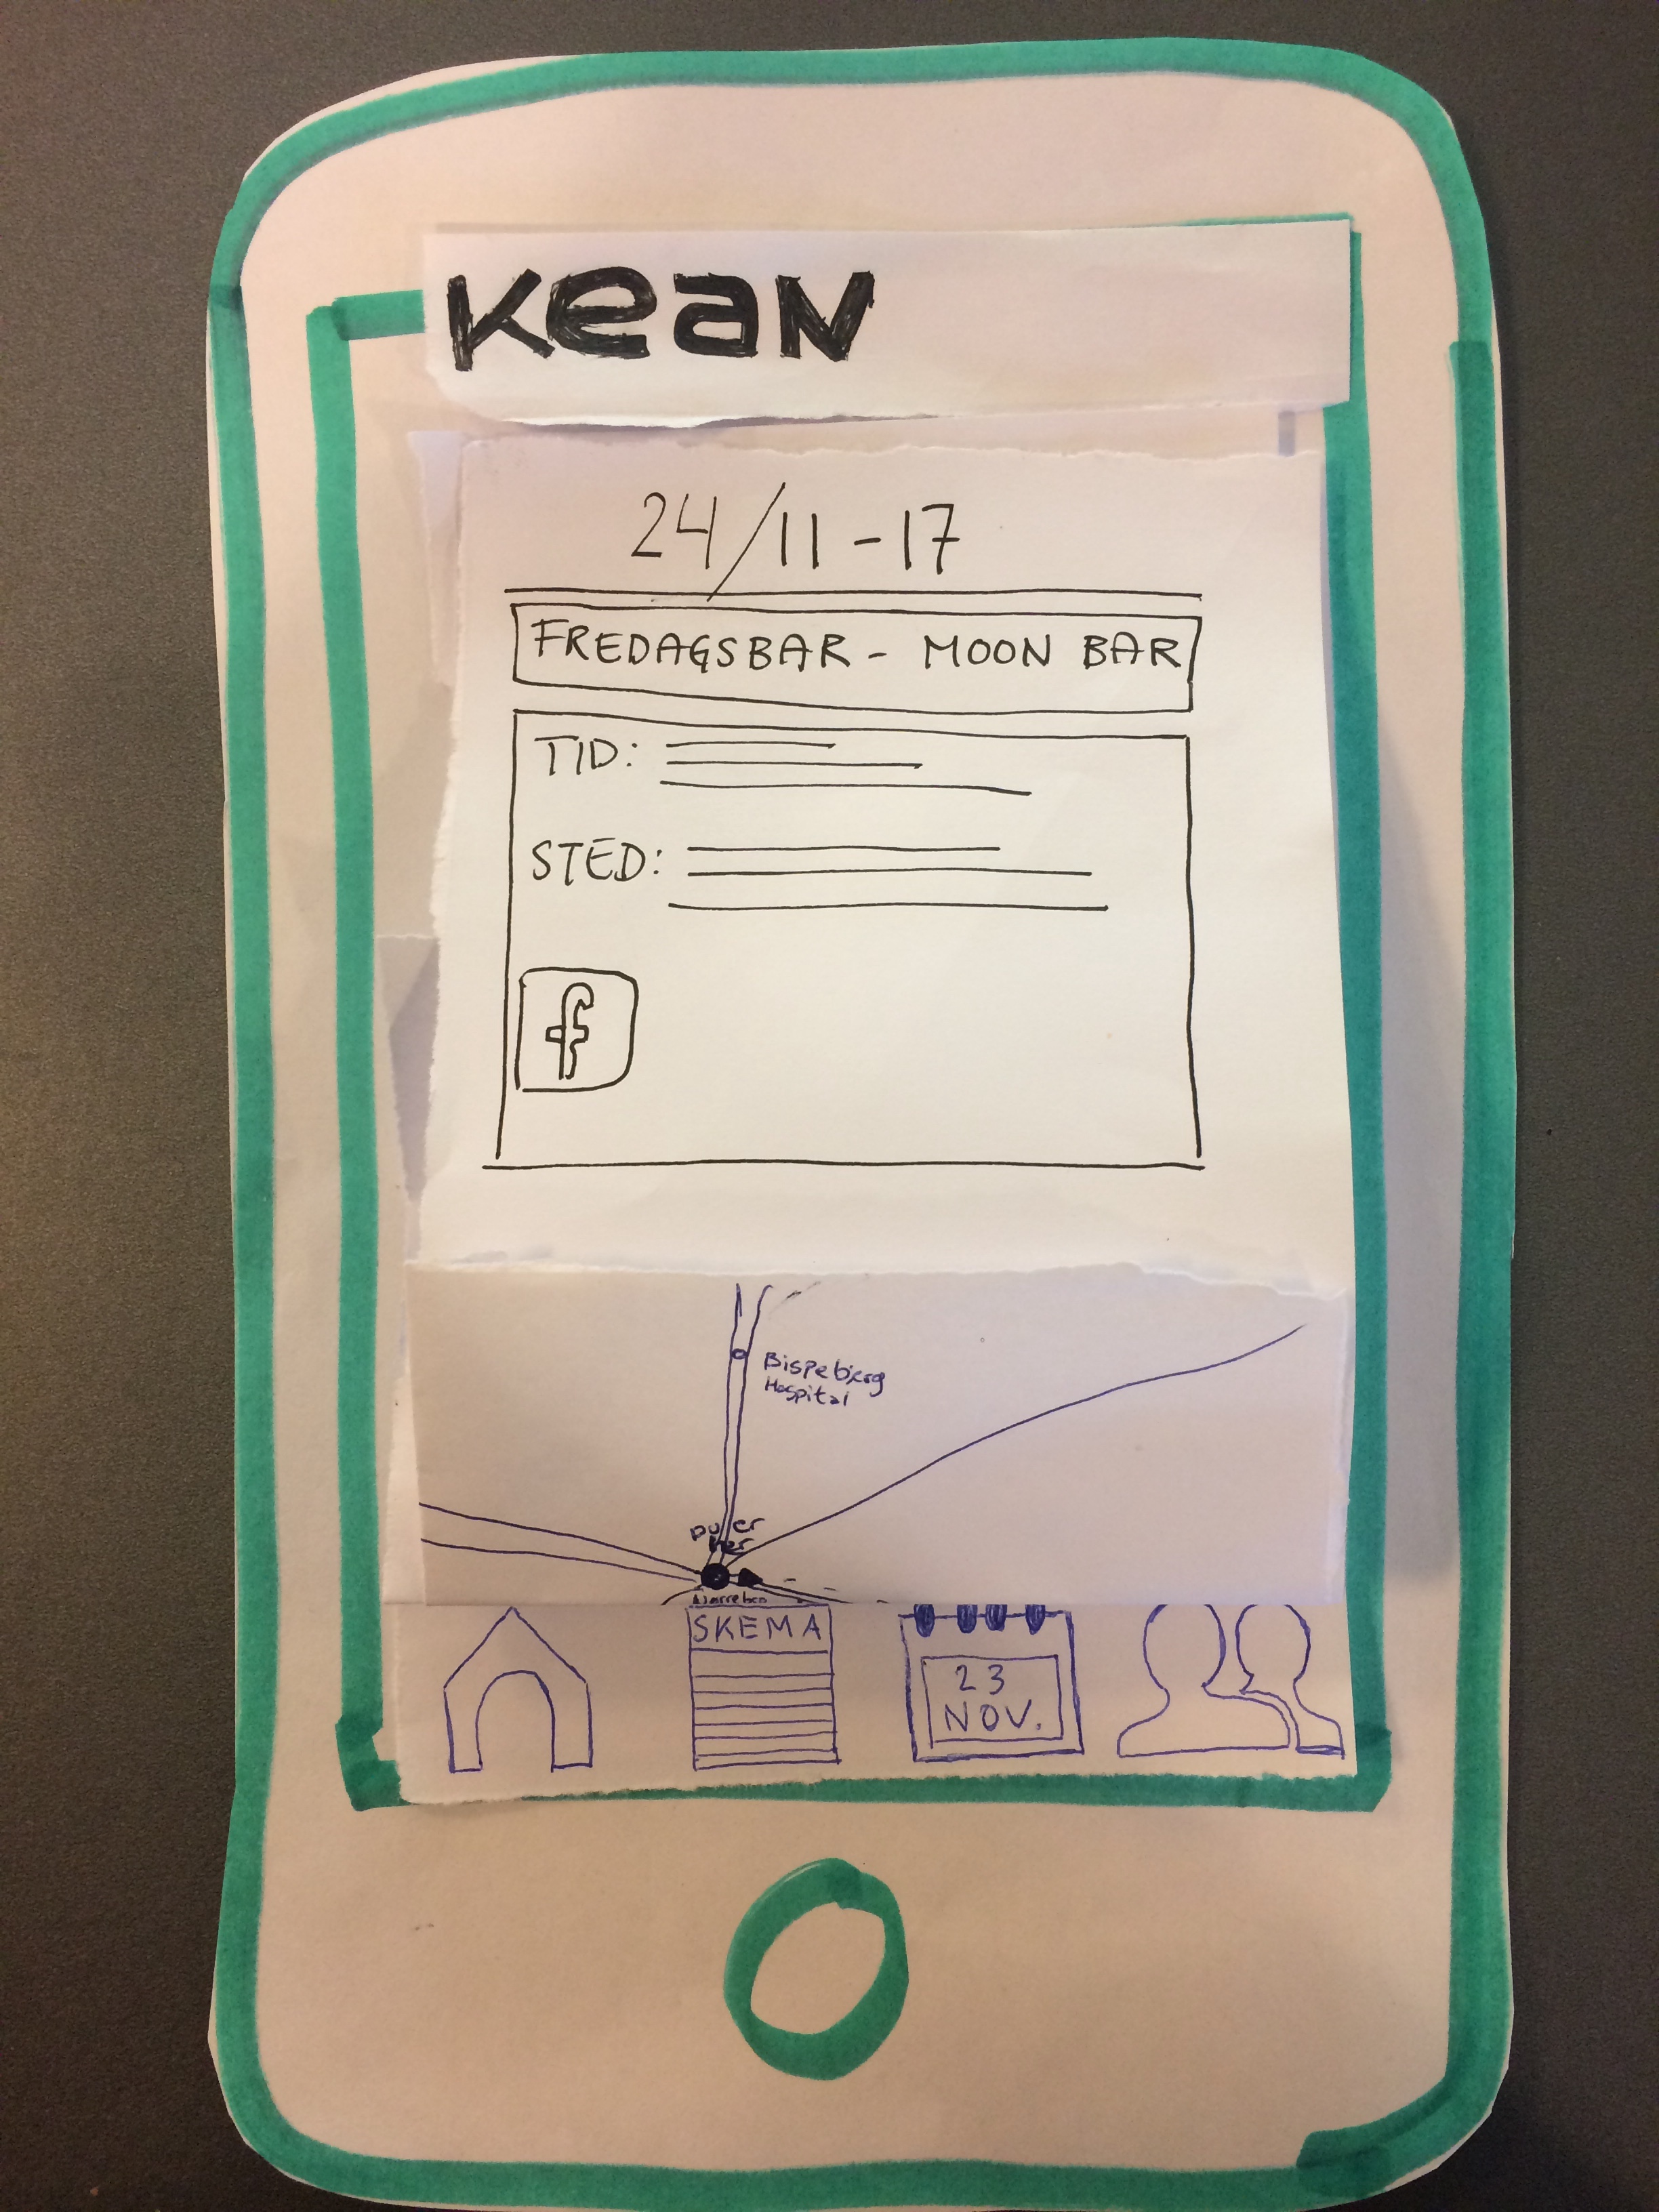 Kean
24/11-17
FREDAGSBAR - MOON BAR
TID:
STED:
f
Bispebjerg
Hospital
DU er
her
SKEMA
23
NOV.